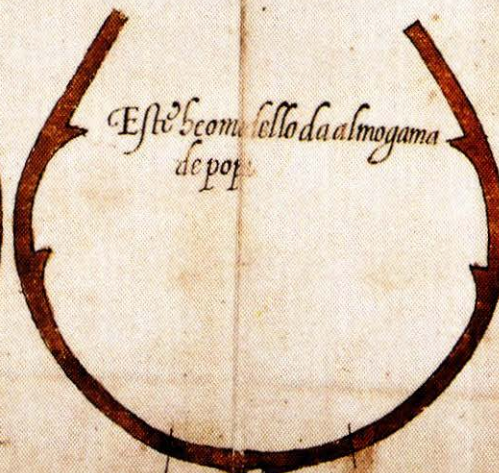 Este he o modello da almogama
de popa